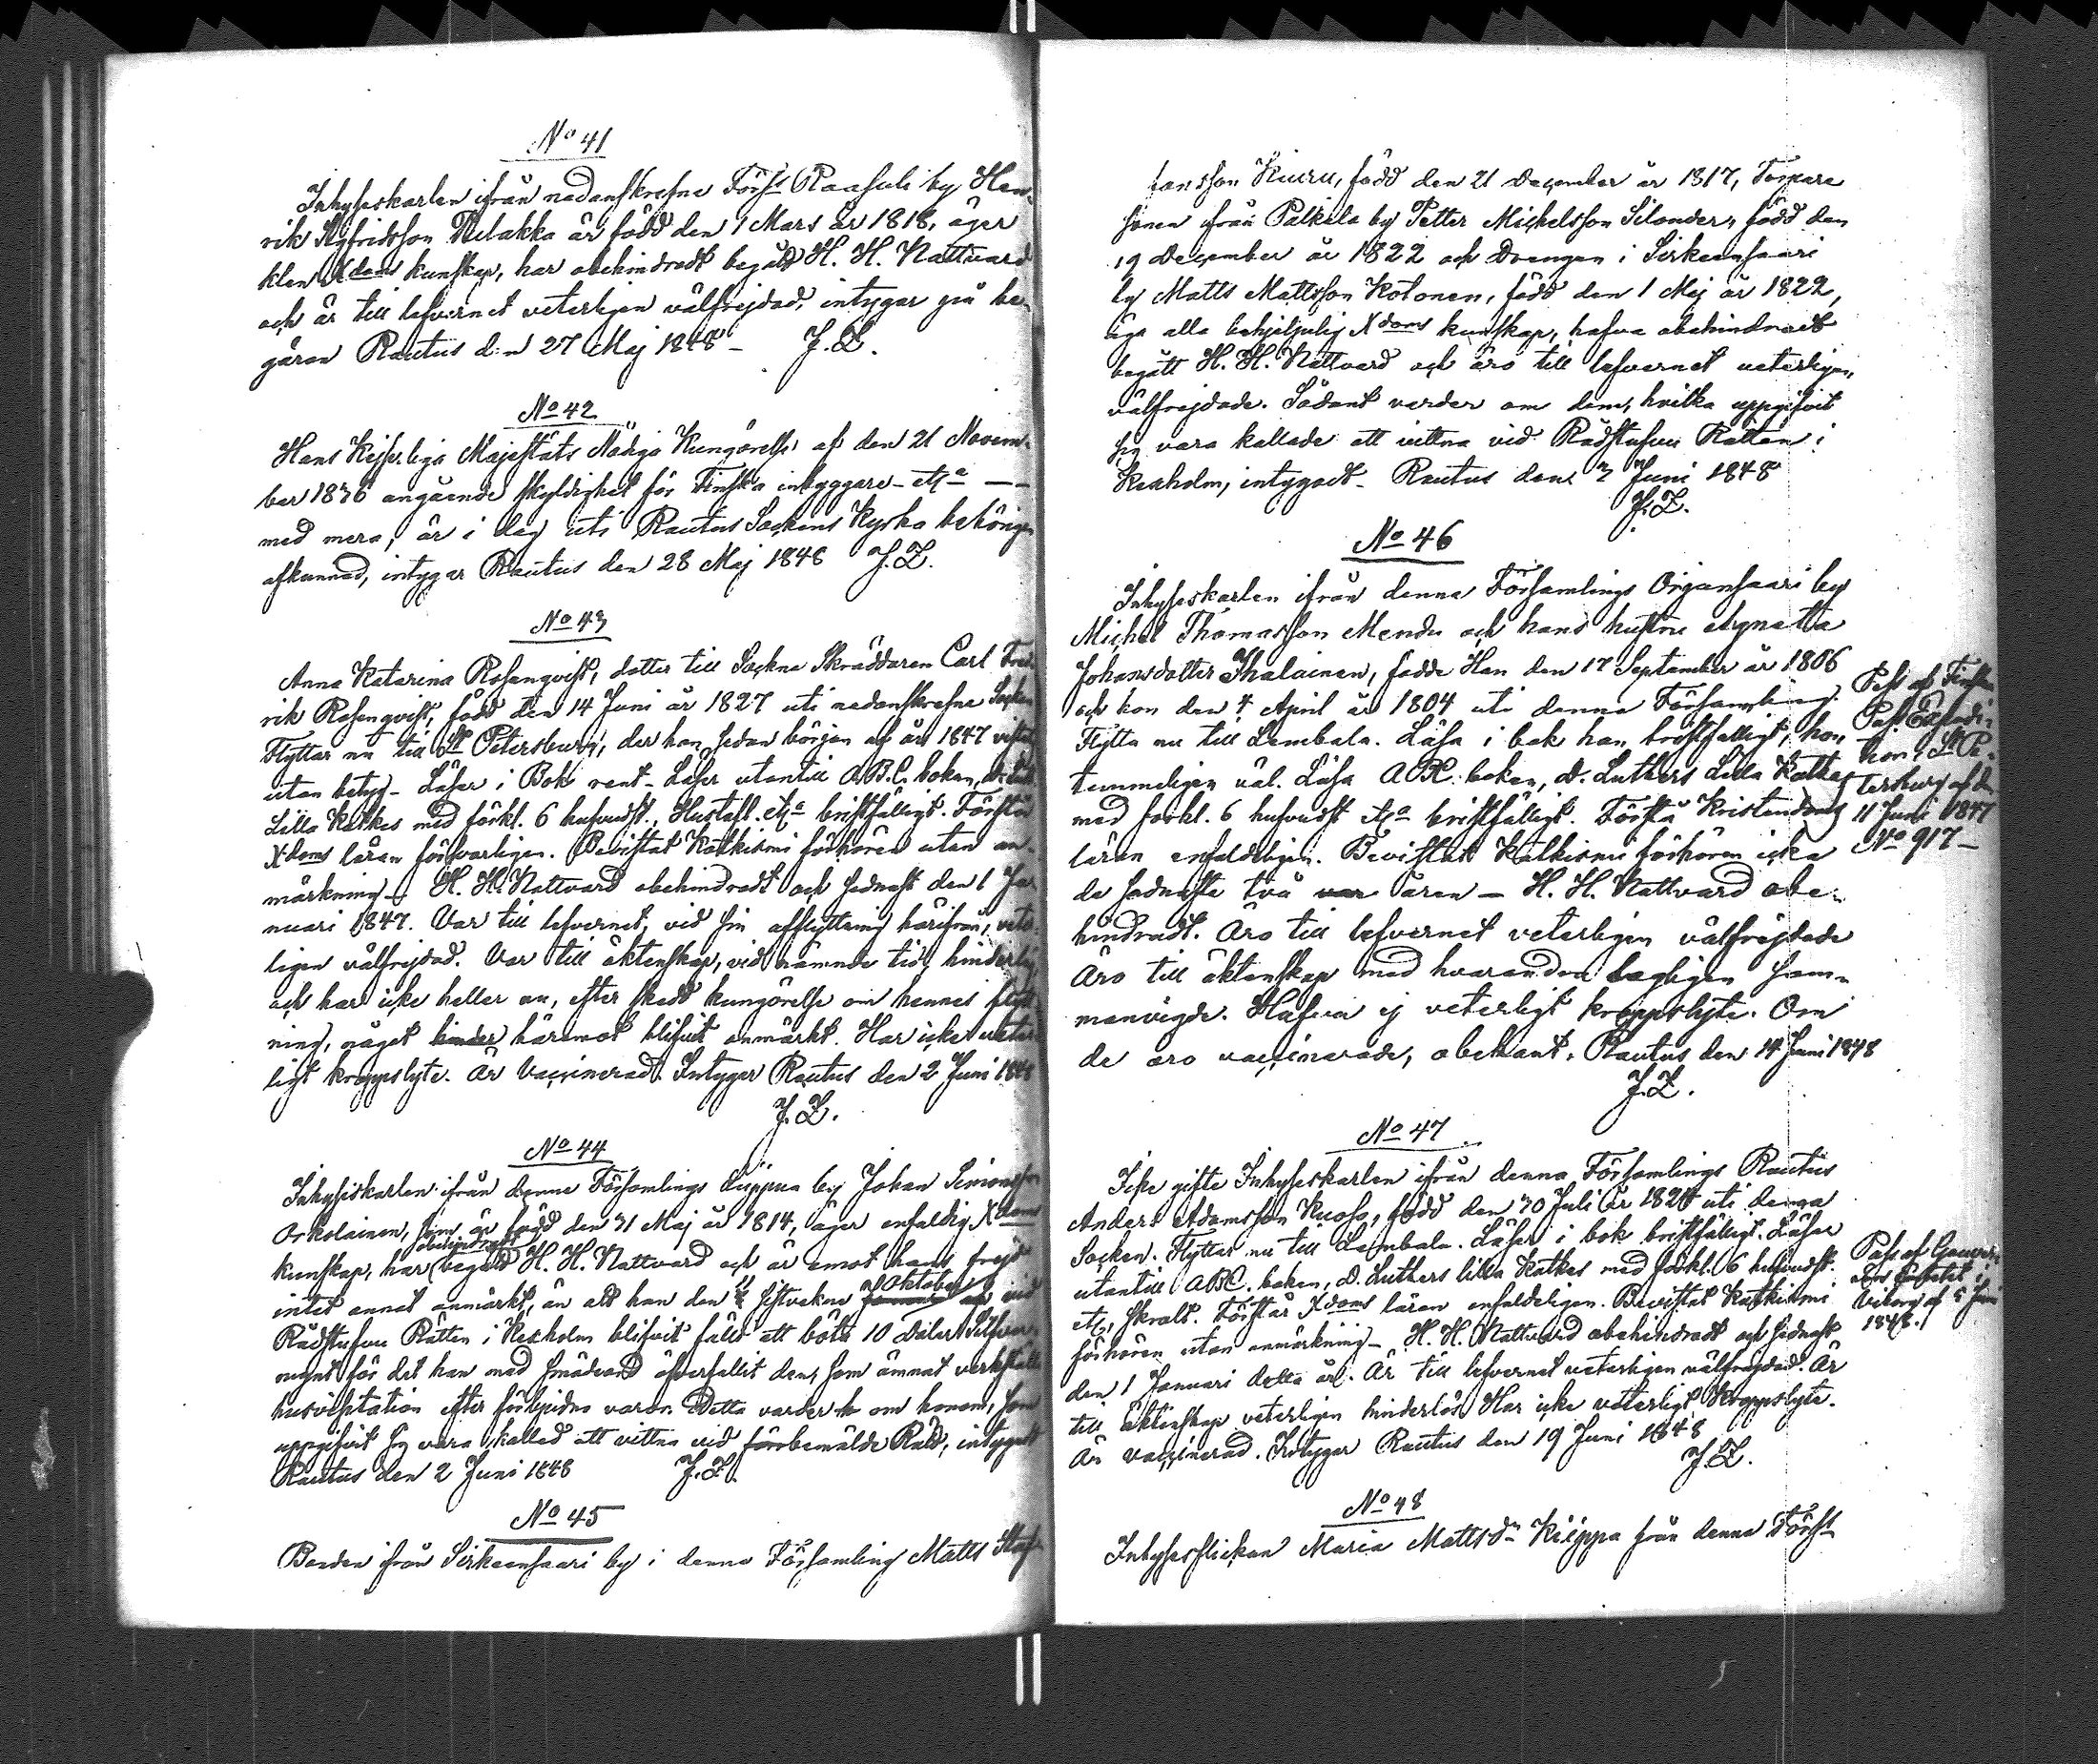 No 41
Inhyseskarlen ifrån nedanskrefne Förs:s Raasuli by Hen-
rik Sigfridsson Melakka är född den 1 Mars år 1818, äger
klen Xdoms kunskap, har obehindradt begått H. H. Nattvard
och är till lefvernet veterligen välfrejdad, intygar på be-
gäran Rautus den 27 Maj 1848 - J. Z.
No 42
Hans Kejserliga Majestäts Nådiga Kungörelse af den 21 Novem-
ber 1836 angående skyldighet för Finska inbyggare - etc
med mera, är i dag uti Rautus Sockens Kyrka behörigen
afkunnad, intygar Rautus den 28 Maj 1848 J. Z.
No 43
Anna Katarina Rosenqvist, dotter till Sockne Skräddaren Carl Fred-
rik Rosenqvist, född den 14 Juni år 1827 uti nedanskrefne Socken
Flyttar nu till St Petersburg, der hon sedan början af år 1847 vistats
utan betyg - Läser i Bok rent - Läser utantill A.B.C. boken, D: Luth
Lilla Katkes med förkl. 6 hufvudst., Hustafl. etc bristfälligt. Förstår
Xdoms läran försvarligen. Bevistat Katkismi förhören utan an-
märkning - H. H. Nattvard obehindradt och sednast den 1 Ja-
nuari 1847. Var till lefvernet, vid sin afflyttning härifrån, veter-
ligen välfrejdad. Var till äktenskap, vid nämnde tid, hinderlös
och har icke heller nu, efter skedd kungörelse om hennes flytt-
ning, något hinder häremot blifvit anmärkt. Har icke veter-
ligt kroppslyte. Är Vaccinerad. Intygar Rautus den 2 Juni 1848
J. Z.
No 44
Inhyseskarlen ifrån denna Församlings Küppua by Johan Simonsson
Orkolainen, som är född den 31 Maj år 1814, äger enfaldig Xdoms
kunskap, har obehindradt begått H. H. Nattvard och är emot hans frejd
intet annat anmärkt, än att han den sistvekne Oktober vid
Rådstufvu Rätten i Kexholm blifvit fälld att böta 10 daler Silfver-
mynt för det han med smädeord öfverfallit den, som ämnat verkställa
husvisitation efter förbjudna varor. Detta varder om honom, som
uppgifvit sig vara kallad att vittna vid förrbemälde Rätt, intygadt
Rautus den 2 Juni 1848 J. Z.
No 45
Bonden ifrån Sirkeensaari by i denna Församling Matts Staf-
fansson Kiuru, född den 21 December år 1817, Torpare
sonen ifrån Palkela by Petter Michelsson Silander, född den
19 December år 1822 och Drengen i Sirkeensaari
by Matts Mattsson Kotonen, född den 1 Maj år 1822,
äga alla behjelplig Xdoms kunskap, hafva obehindradt
begått H. H. Nattvard och äro till lefvernet veterligen
välfrejdade. Sådant varder om dem, hvilka uppgifvit
sig vara kallade att vittna vid Rådstufvu Rätten i
Kexholm, intygadt - Rautus den 3 Juni 1848
J. Z.
No 46
Inhyseskarlen ifrån denna Församlings Orjansaari by
Michel Thomasson Mendu och hans hustru Agnetta
Johansdotter Ihalainen, födde Han den 17 September år 1806
och hon den 4 April år 1804 uti denna Församling.
Flytta nu till Lembala. Läsa i bok han bristfälligt, hon
temmeligen väl. Läsa ABC boken, D. Luthers Lilla Katkes
med förkl. 6 hufvudst etc bristfälligt. Förstå Kristendoms
läran enfaldeligen. Bevistat Katkismi förhören icke
de sednaste två åren - H. H. Nattvard obe-
hindradt. Äro till lefvernet veterligen välfrejdade
Äro till äktenskap med hvarandra lagligen sam-
manvigde. Hafva ej veterligt kroppslyte. Om
de äro vaccinerade, obekant. Rautus den 14 Juni 1848
J. Z.
Pass af Finska
Pass Expedi-
tion i St Pe-
tersburg af d.
11 Juni 1847
No 917 -
No 47
Icke gifte Inhyseskarlen ifrån denna Församlings Rautus
Anders Adamsson Kuosa, född den 30 Juli år 1826 uti denna
Socken. Flyttar nu till Lembala. Läser i bok bristfälligt. Läser
utantill ABC. boken, D. Luthers lilla Katkes med förkl. 6 hufvudst.
etc, skralt. Förstår Xdoms läran enfaldeligen. Bevistat Katkismi
förhören utan anmärkning - H. H. Nattvard obehindradt och sednast
den 1 Januari detta år. Är till lefvernet veterligen välfrejdad. Är
till äktenskap veterligen hinderlös. Har icke veterligt Kroppslyte.
Är vaccinerad. Intygar Rautus den 19 Juni 1848
J. Z.
Pass af Guver-
nörs Embetet i
Viborg af 5 Juni
1848.
No 48
Inhysesflickan Maria Mattsdr Kiippa från denna Förs:s